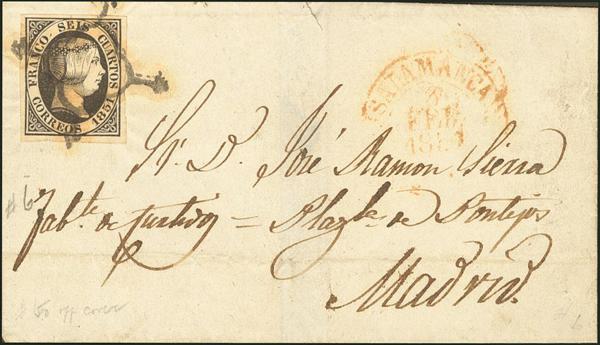 FRANCO. SEIS CUARTOS.
CORREOS 1851
SALAMANCA
FEB.
Sr. D. José Ramon Sierra
Fabte. de Curtidos = Plazla. de Pontejos
Madrid.
#6
$50 off cover
#6